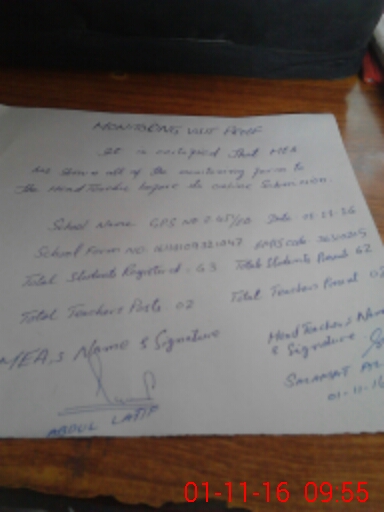 MONITORING VISIT PROOF
It is certified that MEA
has shown all of the monitoring forms to
the Head Teacher before its online submission.
School Name GPS NO.2 45/ Date 01-11-16
School Form NO. EMIS code
Total Students Registered : 63 Total Students Present 62
Total Teachers Posts 02 Total Teachers Present 02
MEA,s Name & Signature
Head Teacher,s Name
& Signature
ABDUL LATIF
SALAMAT
01-11-16
01-11-16 09:55